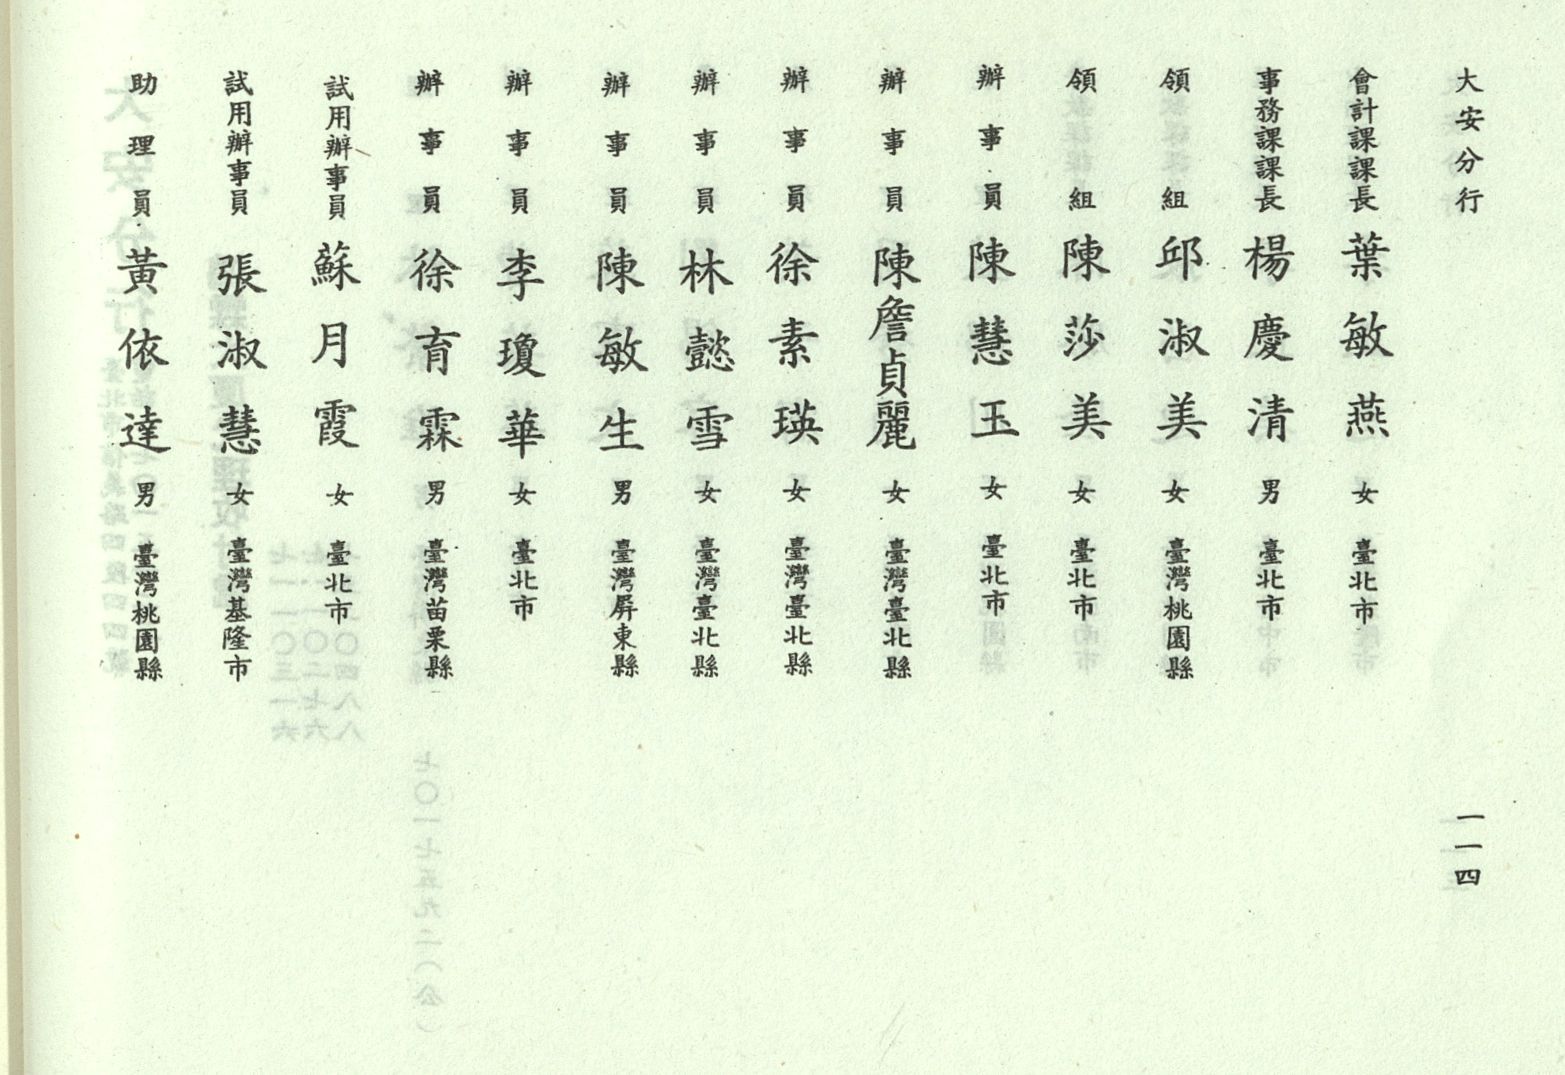 大安分行
一一四
會計課課長 葉敏燕 女 臺北市
事務課課長 楊慶清 男 臺北市
領組 邱淑美 女 臺灣桃園縣
領組 陳莎美 女 臺北市
辦事員 陳慧玉 女 臺北市
辦事員 陳詹貞麗 女 臺灣臺北縣
辦事員 徐素瑛 女 臺灣臺北縣
辦事員 林懿雪 女 臺灣臺北縣
辦事員 陳敏生 男 臺灣屏東縣
辦事員 李瓊華 女 臺北市
辦事員 徐育霖 男 臺灣苗栗縣
試用辦事員 蘇月霞 女 臺北市
試用辦事員 張淑慧 女 臺灣基隆市
助理員 黃依達 男 臺灣桃園縣